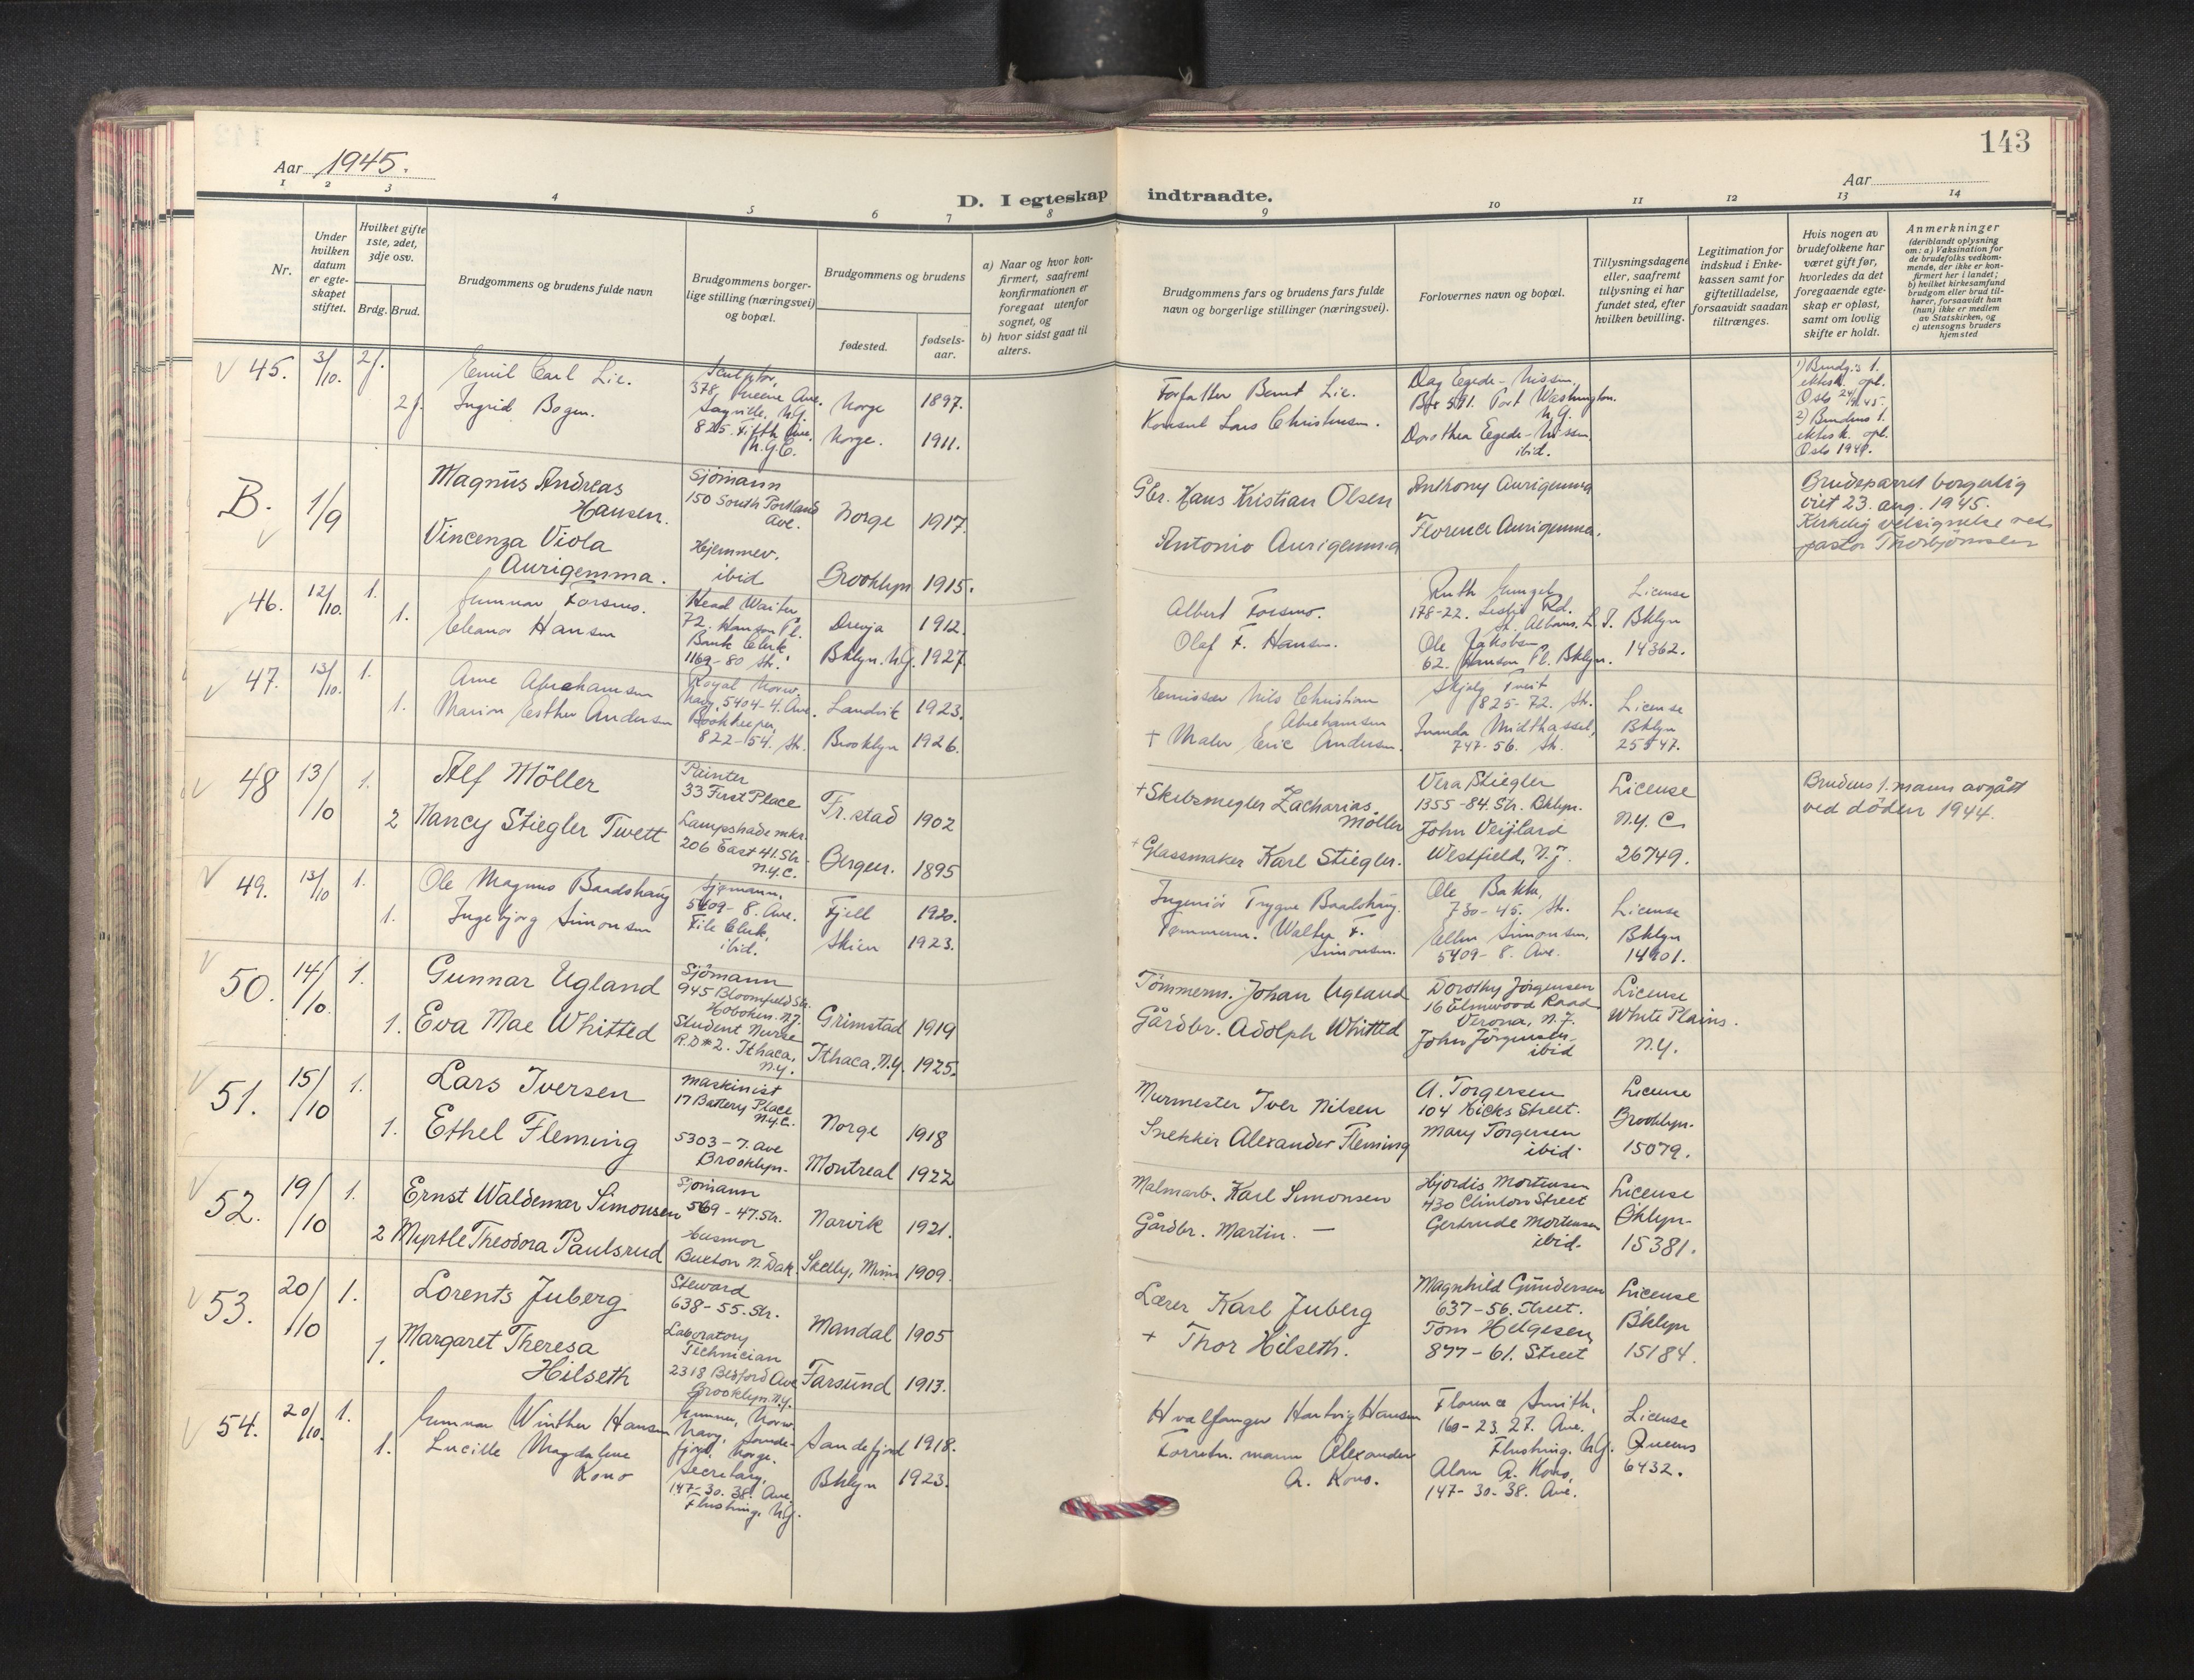 143
Aar 1945.
Aar
D. I egteskap indtraadte.
1 2 3 4 5 6 7 8 9 10 11 12 13 14
Nr.
Under hvilken datum er egteskapet stiftet.
Hvilket gifte 1ste, 2det, 3dje osv.
Brdg. Brud.
Brudgommens og brudens fulde navn
Brudgommens borgerlige stilling (næringsvei) og bopæl.
Brudgommens og brudens
fødested.
fødselsaar.
a) Naar og hvor konfirmert, saafremt konfirmationen er foregaat utenfor sognet, og
b) hvor sidst gaat til alters.
Brudgommens fars og brudens fars fulde navn og borgerlige stillinger (næringsvei).
Forlovernes navn og bopæl.
Tillysningsdagene eller, saafremt tillysning ei har fundet sted, efter hvilken bevilling.
Legitimation for indskud i Enkekassen samt for giftetilladelse, forsaavidt saadan tiltrænges.
Hvis nogen av brudefolkene har været gift før, hvorledes da det foregaaende egteskap er opløst, samt om lovlig skifte er holdt.
Anmerkninger
(deriblandt oplysning om: a) Vaksination for de brudefolks vedkommende, der ikke er konfirmert her i landet; b) hvilket kirkesamfund brudgom eller brud tilhører, forsaavidt han (hun) ikke er medlem av Statskirken, og c) utensogns bruders hjemsted
45. 3/10. 2 f. Emil Carl Lie. Sculptor, 378, Greene Ave. Sayville, N.Y. Norge 1897.
Forfatter Bernt Lie. Dag Egede-Nissen, Box 591. Port Washington. N.Y.
2 f. Ingrid Bogen. 825. Fifth Ave. N.Y.C. Norge. 1911.
Konsul Lars Christensen. Dorothea Egede-Nissen ibid.
1) Brudg.s 1. ektesk. opl. Oslo 45.
2) Brudens 1. ektesk. opl. Oslo 1940.
B. 1/9 Magnus Andreas Hansen. Sjömann 150 South Portland Ave. Norge 1917.
Gbr. Hans Kristian Olsen Anthony Aurigemma
Vincenza Viola Aurigemma. Hjemmev. ibid Brooklyn 1915.
Antonio Aurigemma Florence Aurigemma.
Brudeparret borgerlig
viet 23. aug. 1945.
Kirkelig velsignelse ved
pastor Thorbjørnsen
46. 12/10. 1. Gunnar Forsmo. Head Waiter 72. Hanson Pl. Drevja 1912.
Albert Forsmo. Ruth 178-22. Leslie Rd. St. Albans. L.I. License Bklyn 14362.
1. Eleanor Hansen Bank Clerk, 1169-80 Str. Bklyn. N.Y. 1927.
Olaf F. Hansen. Ole Jakobsen 62. Hanson Pl. Bklyn.
47. 13/10. 1. Arne Abrahamsen Royal Norw. Navy, 5404-4. Ave. Landvik 1923.
Emissær Nils Christian Abrahamsen Skjolg Tveit 825-72. Str. License Bklyn 25547.
1. Marion Esther Andersen Bookkeeper, 822-54. Str. Brooklyn 1926.
+ Maler Eric Andersen. Midthassel, 747-56. Str.
48 13/10 1. Alf Möller Painter 33 First Place Fr.stad 1902
+ Skibsmegler Zacharias Möller Vera Stiegler 1355-84. Str. Bklyn. License N.Y.C. 26749.
2 Nancy Stiegler Twett Lampshade mkr. 206 East 41. Str. N.Y.C. Bergen. 1895
+ Glassmaker Karl Stiegler. John Veijlard Westfield, N.J.
Brudens 1. mann avgått
ved döden 1944.
49. 13/10 1. Ole Magnus Baadshaug Sjømann, 5409-8. Ave. Fjell 1920.
Ingeniör Trygve Baadshaug. Ole Bakke, 730-45. Str. License Bklyn 14901.
1. Ingebjørg Simonsen File Clerk, ibid. Skien 1923.
Tømmerm. Walter F. Simonsen. Ellen Simonsen, 5409-8. Ave.
50. 14/10. 1. Gunnar Ugland Sjömann 945 Bloomfield Str. Hoboken. N.J. Grimstad 1919
Tömmerm. Johan Ugland Dorothy Jörgensen 16 Elmwood Road Verona, N.J. License White Plains. N.Y.
1. Eva Mae Whitted Student Nurse R.D#2. Ithaca, N.Y. Ithaca, N.Y. 1925.
Gårdbr. Adolph Whitted John Jörgensen ibid
51. 15/10 1. Lars Iversen Maskinist 17 Battery Place N.Y.C. Norge 1918
Murmester Iver Nilsen A. Torgersen 104 Hicks Street. License Brooklyn. 15079.
1. Ethel Fleming 5303-7. Ave Brooklyn. Montreal 1922
Snekker Alexander Fleming Mary Torgersen ibid.
52. 19/10 1. Ernst Waldemar Simonsen Sjömann 569-47. Str. Narvik 1921.
Malmarb. Karl Simonsen Hjordis Mortensen 430 Clinton Street License Bklyn. 15381.
2 Myrtle Theodora Paulsrud Husmor Buxton N. Dak. Skelly, Minn 1909.
Gårdbr. Martin. — Gertrude Mortensen ibid.
53. 20/10 1. Lorents Juberg Steward 638-55. Str. Mandal 1905
Lærer Karl Juberg Magnhild Gundersen 637-56. Street. License Bklyn 15184.
1. Margaret Theresa Hilseth Laboratory Technician 2318 Bedford Ave Brooklyn N.Y. Farsund 1913.
+ Thor Hilseth. Tom Helgesen, 877-61. Street
54. 20/10. 1. Gunnar Winther Hansen Gunner, Norw. Navy, Sandefjord, Norge. Sandefjord 1918.
Hvalfanger Hartvig Hansen Florence Smith, 160-23. 27. Ave. Flushing. N.Y. License Queens 6432.
1. Lucille Magdalene Kono Secretary, 147-30. 38. Ave. Flushing, N.Y. Bklyn 1923.
Forretn. mann Alexander A. Kono. Alan A. Kono, 147-30-38. Ave.